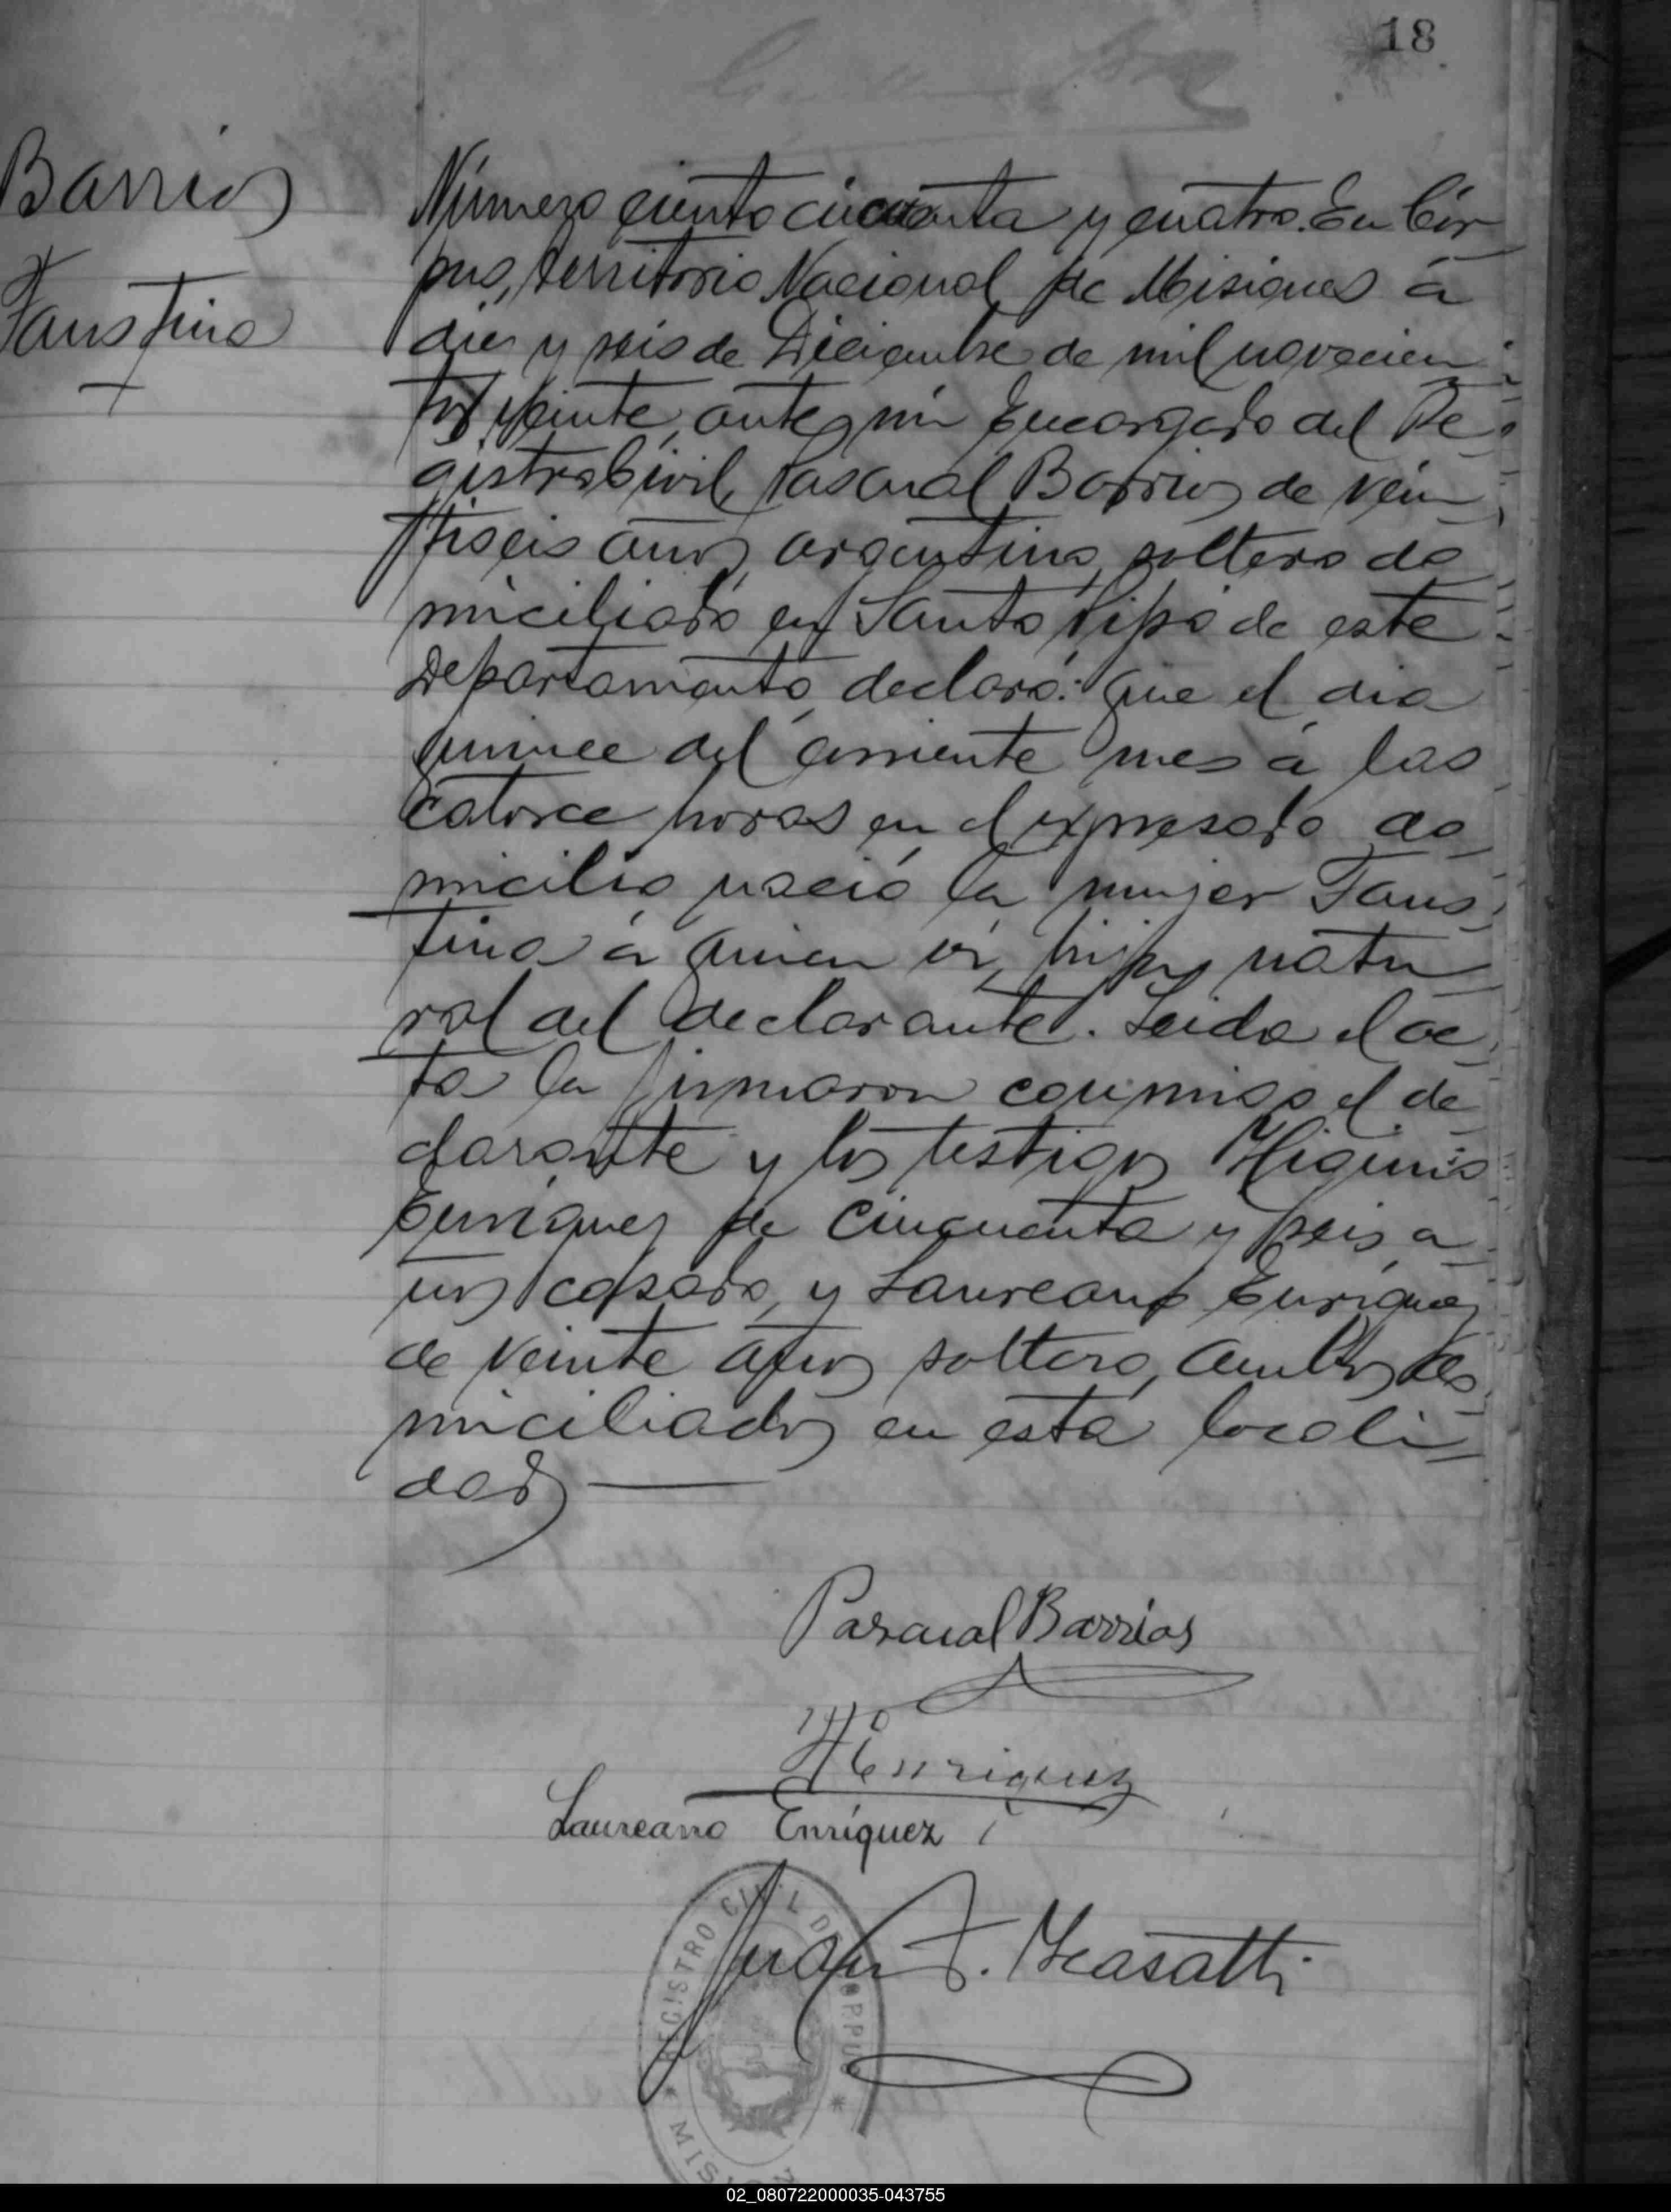 18
Barrios
Faustina
Número ciento cincuenta y cuatro. En Cór
pus, Territorio Nacional de Misiones á
diez y seis de Diciembre de mil novecien
tos veinte, ante mi Encargado del Re
gistro Civil, Pascual Barrios de vein
tiseis años, argentino, soltero do
miciliado en Santo Pipó de este
Departamento, declaró: que el dia
quince del corriente mes á las
catorce horas en el expresado do
micilio nació la mujer Faus
tina á quien ví, hija natu
ral del declarante. Leida el ac
ta la firmaron conmigo el de
clarante y los testigos Higinio
Enriquez de cincuenta y seis a
ños casado, y Laureano Enriquez
de veinte años soltero, ambos do
miciliados en esta locali
dad
Pascual Barrios
HEnriquez
Laureano Enríquez
Juan F.
REGISTRO CIVIL DE CORPUS
MISIONES
02_080722000035-043755